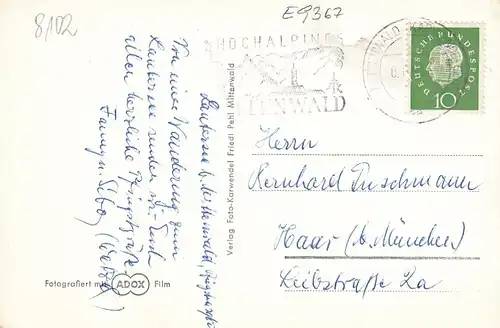 8/102
E9367
HOCHALPINES
MITTENWALD
DEUTSCHE BUNDESPOST
10
Lautersee b. Mittenwald,
Von einer Wanderung zum
Lautersee senden wir Euch
allen herzliche Pfingstgrüße
Fanny u.
Verlag Foto-Karwendel Friedl Pehl Mittenwald
Fotografiert mit ADOX Film
Herrn
Bernhard Duschmann
Haar (b. München)
Leibstraße 2a